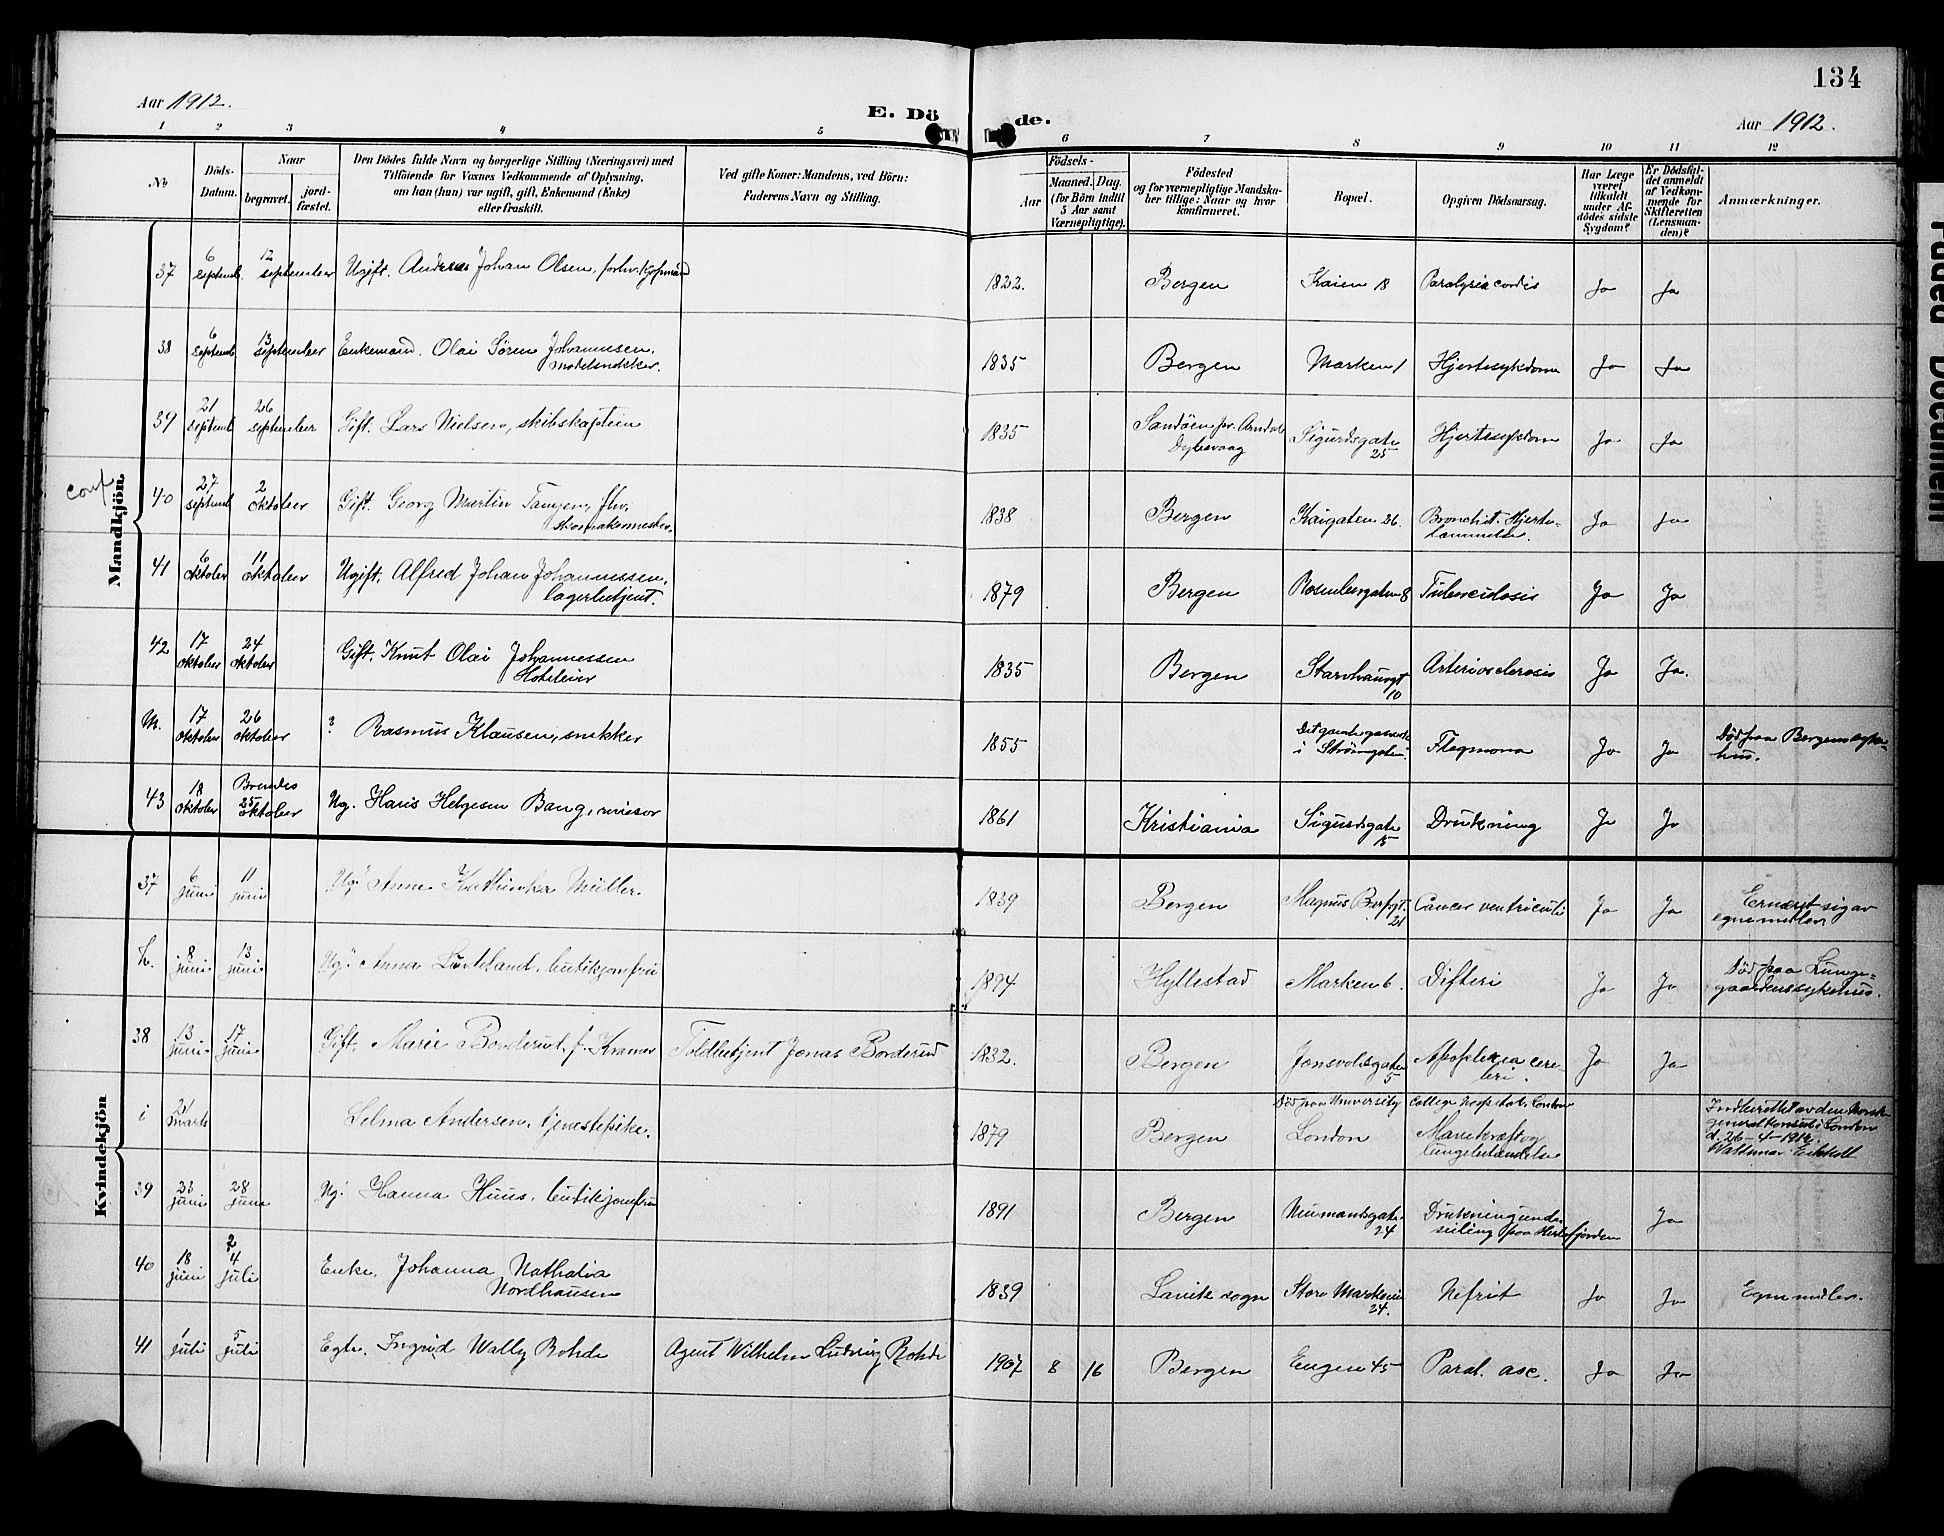 134
Aar 1912.
E. Döde.
Aar 1912.
1 2 3 4 5 6 7 8 9 10 11 12
No
Döds-Datum.
Naar
begravet.
jord-fæstet.
Den Dödes fulde Navn og borgerlige Stilling (Næringsvei) med
Tilföiende for Voxnes Vedkommende af Oplysning,
om han (hun) var ugift, gift, Enkemand (Enke)
eller fraskilt.
Ved gifte Koner: Mandens, ved Börn:
Faderens Navn og Stilling.
Födsels-
Aar
Maaned. Dag.
(for Börn indtil
5 Aar samt
Værnepligtige).
Födested
og for værnepligtige Mandskaber tillige: Naar og hvor
konfirmeret.
Bopæl.
Opgiven Dödsaarsag.
Har Læge
været
tilkaldt
under Afdödes sidste
Sygdom?
Er Dödsfaldet anmeldt
af Vedkommende for
Skifteretten
(Lensmanden)?
Anmærkninger.
Mandkjön.
37 6 septemb. 12 september Ugift. Andreas Johan Olsen, forhv. 1822. Bergen Kaien 18 Paralysia cordis Ja Ja
38 6 septemb. 13 september Enkemand. Olai Sören Johannesen, 1835 Bergen Marken 1 Hjertesykdom Ja Ja
39 21 septemb 26 september Gift. Lars Nielsen, skibskaptein 1835 Sandöen pr. Arendal Dybevaag Sigurdsgate 25 Hjertesykdom Ja Ja
conf.
40 27 septemb 2 oktober Gift. Georg Martin Tangen, fhv. skomakermester. 1838 Bergen Kaigaten 26. Bronchit. Hjertelammelse. Ja Ja
41 6 oktober 11 oktober Ugift. Alfred Johan Johannessen, lagerbetjent. 1879 Bergen Rosenbergaten 8 Tuberculosis Ja Ja
42 17 oktober 24 oktober Gift. Knut Olai Johannessen Hoteleier 1835 Bergen Starvhusgt 10 Arteriosclerosis Ja Ja.
M. 17 oktober 26 oktober ? Rasmus Klausen, snekker 1855 Det gamle gasverk i Strömgaten. Flegmona Ja Ja Död paa Bergens sykehus.
43 18 oktober Brendes 25 oktober Ug. Hans Helgesen Bang, revisor 1861 Kristiania Sigurdsgate 15 Drukning Ja Ja
Kvindekjön
37 6 juni 11 juni Ug. Anne Kathinka Müller. 1839 Bergen Magnus Barfsgt. 21 Cancer ventriculi Ja Ja Ernæret sig av egne midler
L. 8 juni 13 juni Ug. Anna butikjomfru 1894 Hyllestad Marken 6. Difteri Ja Ja Död paa Lungegaardens sykehus.
38 13 juni 17 juni Gift. Marie Borderud f. Kramer Toldbetjent Jonas Borderud 1832. Bergen Jonsvoldsgaten 5 Apoplexia cerebri. Ja Ja
i 21 marts Selma Andersen, tjenestepike. 1879 Bergen Död paa University College Hospital. London London Mavekræft og lungebetændelse Indberettet av den norske generalkonsul i London d. 26-4-1912. Waldemar Eckhell
39 23 juni 28 juni Ug. Hanna Huus, butikjomfru 1891 Bergen Neumandsgate 24 Drukning under seiling paa Herlöfjorden Ja
40 18 juni 2 4 juli Enke. Johanna Nathalia Nordhausen 1839 Lavik sogn Store Markevei 24. Nefrit Ja Ja Egne midler.
41 1 juli 5 juli Egte. Ingrid Wally Rohde Agent Wilhelm Ludvig Rohde 1907 8 16 Bergen Engen 45 Paral. asc. Ja Ja
Faded Document